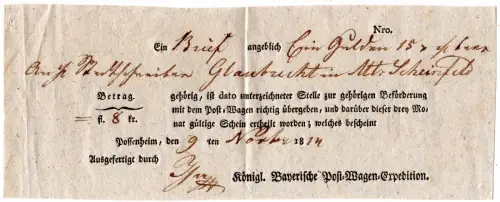 Nro.
Ein Brief angeblich Ein Gulden 15 x
Stadtschreiber Glaubrecht in Mkt. Scheinfeld
Betrag. gehörig, ist dato unterzeichneter Stelle zur gehörigen Beförderung
mit dem Post-Wagen richtig übergeben, und darüber dieser drey Mo-
fl. 8 kr. nat gültige Schein ertheilt worden; welches bescheint
Possenheim, den 9 ten Novbr 1814
Ausgefertigt durch
Königl. Bayerische Post-Wagen-Expedition.